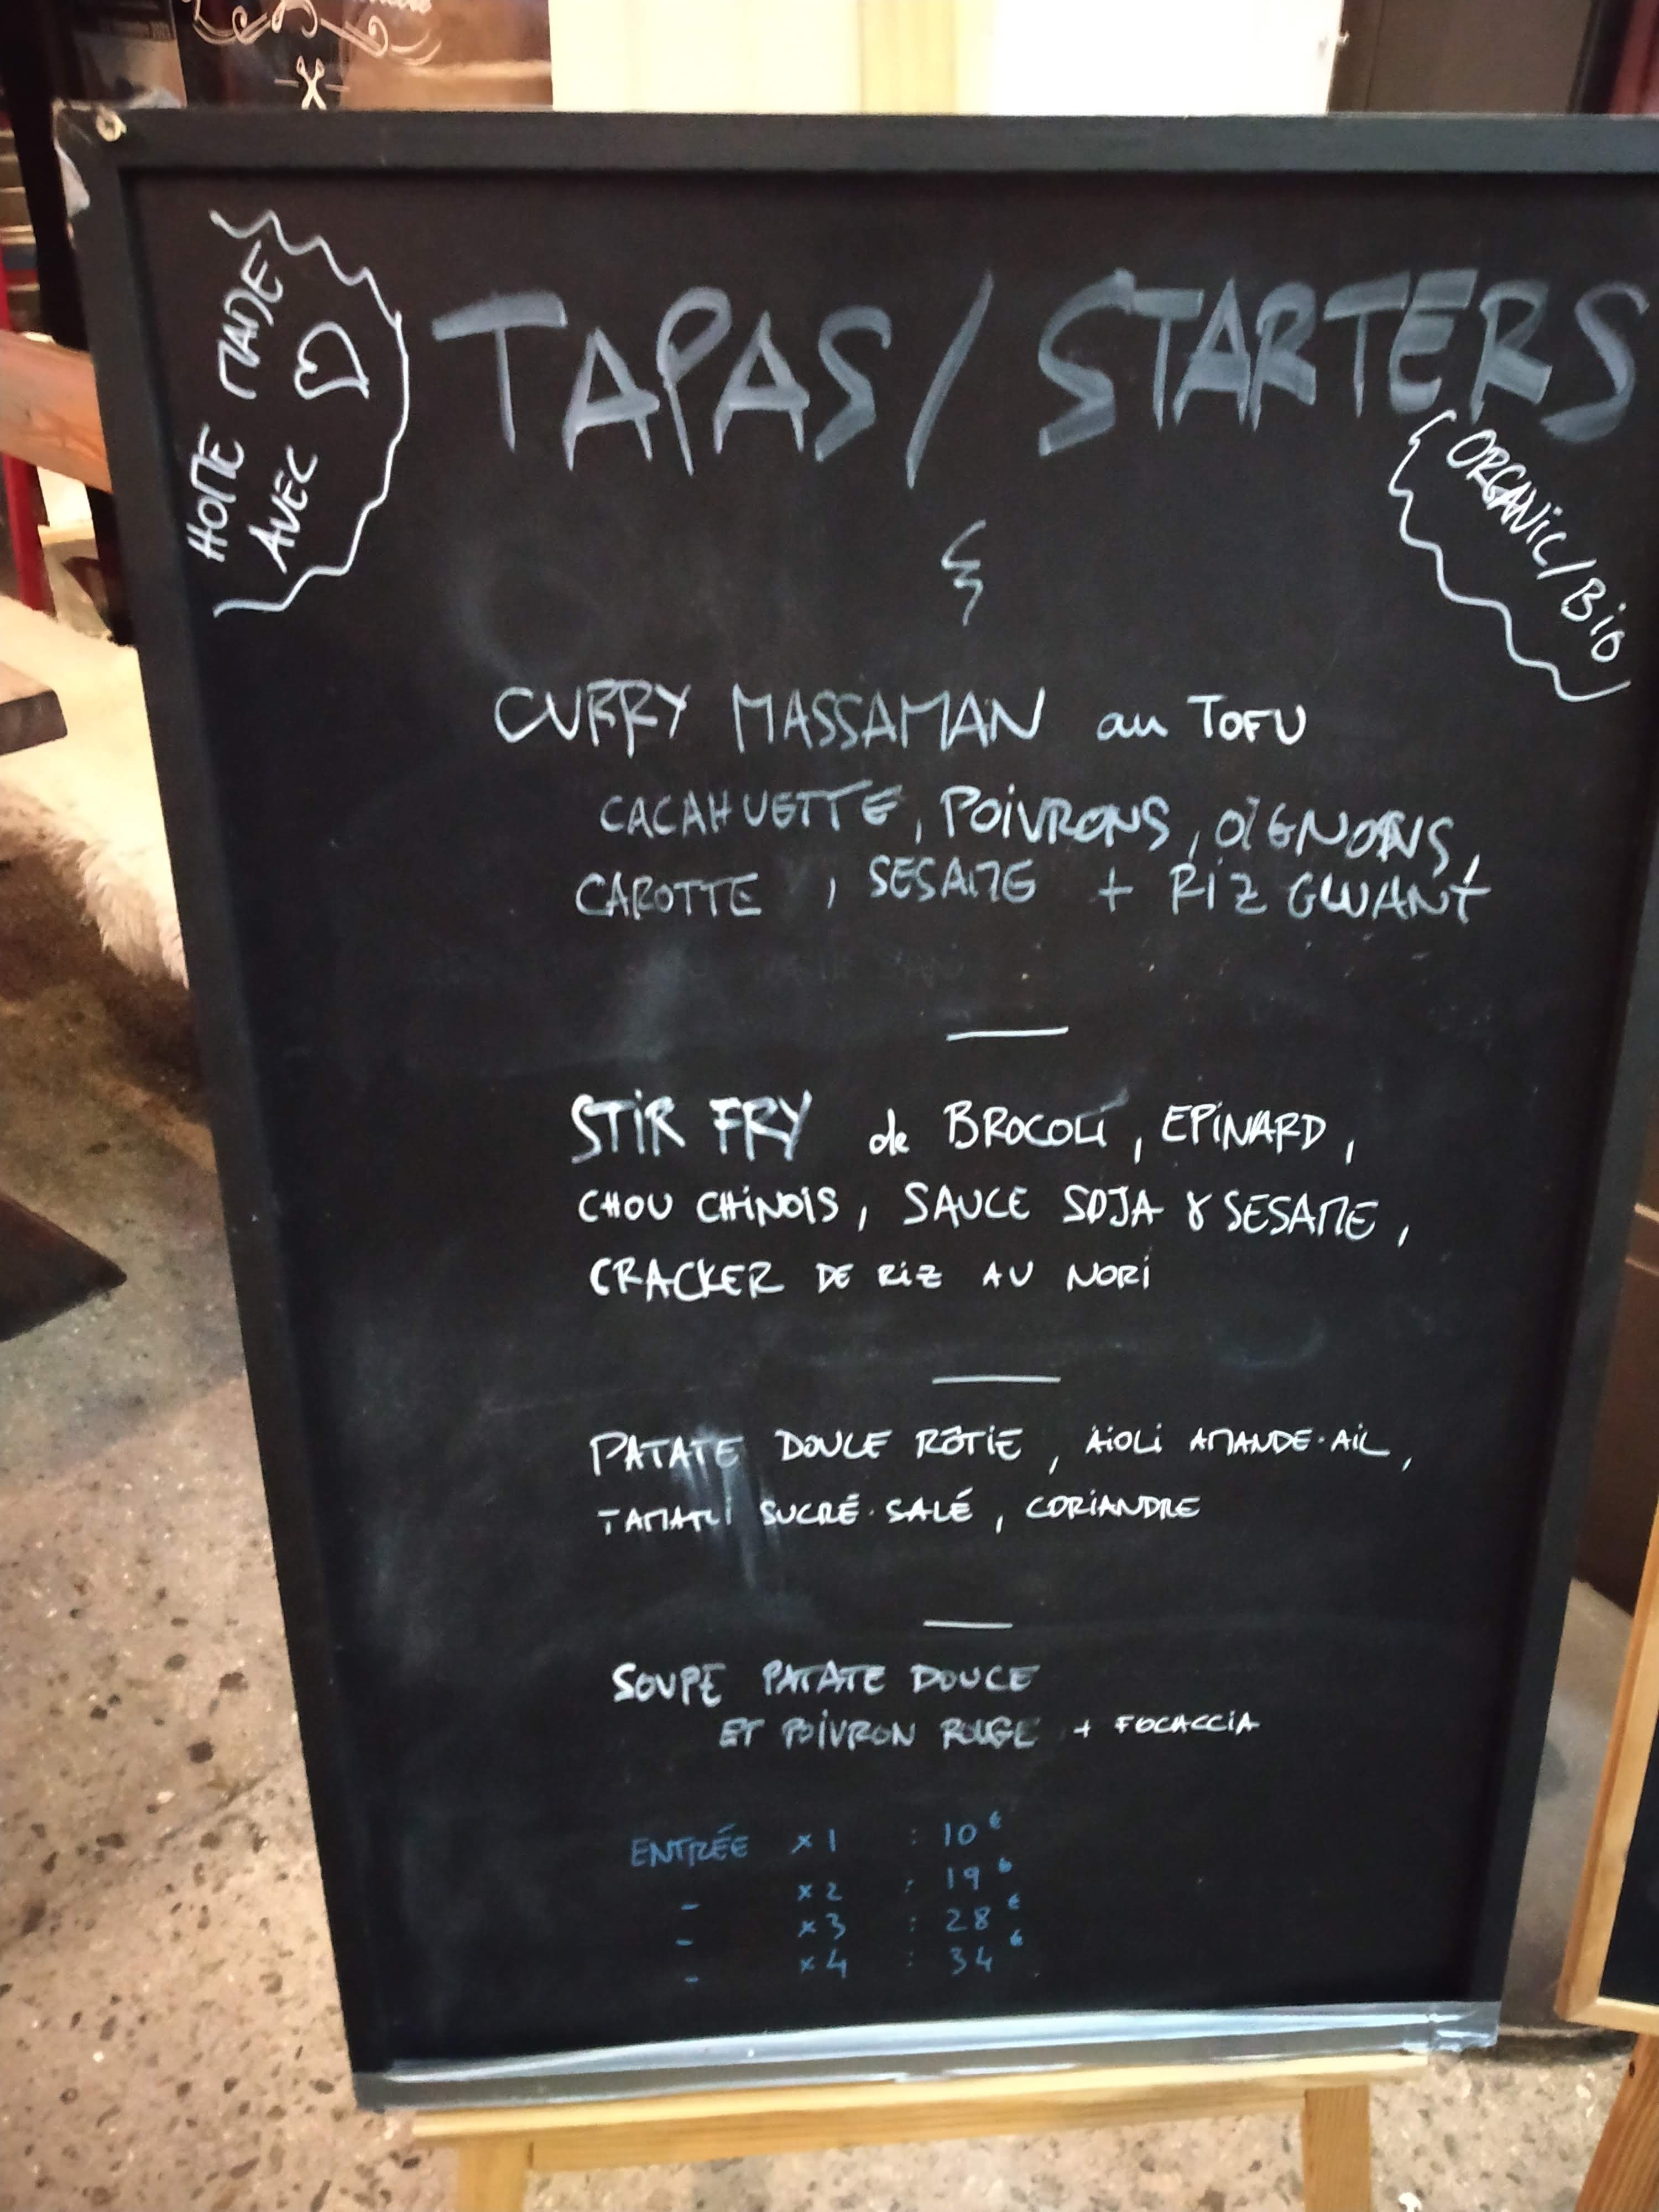 HOME MADE
AVEC
TAPAS / STARTERS
ORGANIC / BIO
CURRY MASSAMAN au TOFU
CACAHUETTE, POIVRONS, OIGNONS,
CAROTTE, SESAME + RIZ GLUANT
STIR FRY de BROCOLI, EPINARD,
CHOU CHINOIS, SAUCE SOJA & SESAME,
CRACKER DE RIZ AU NORI
PATATE DOUCE RÔTIE, AIOLI AMANDE-AIL,
TAMARI SUCRÉ-SALÉ, CORIANDRE
SOUPE PATATE DOUCE
ET POIVRON ROUGE + FOCACCIA
ENTRÉE x1 : 10€
- x2 : 19€
- x3 : 28€
- x4 : 34€